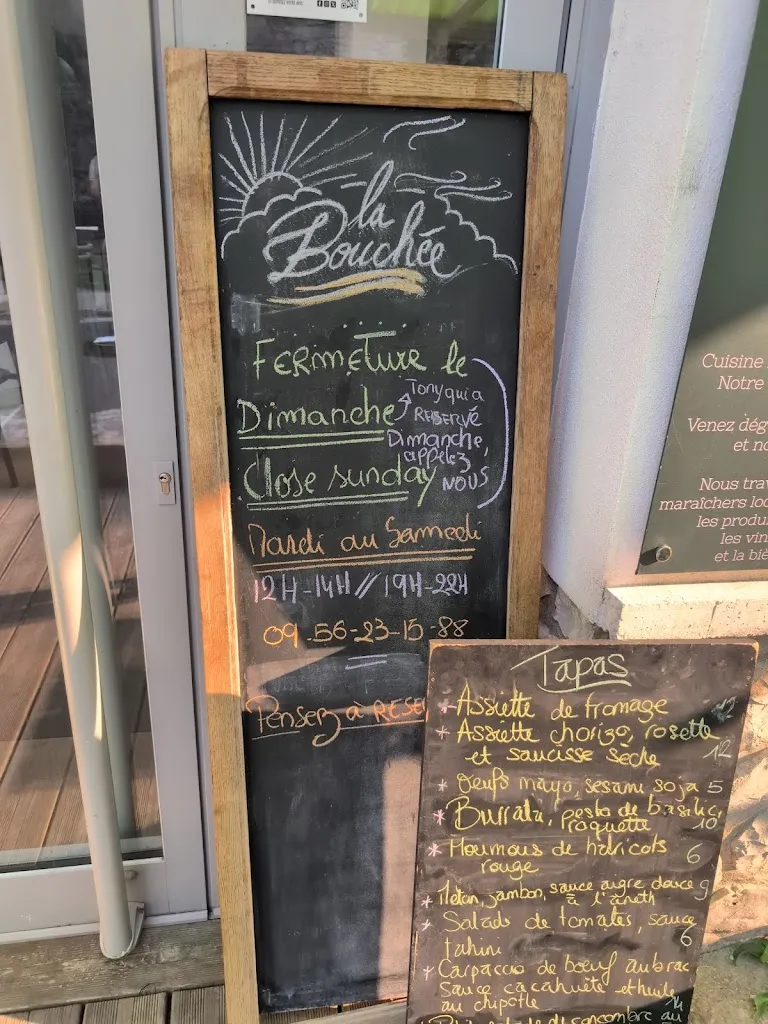 la
Bouchée
FERMETURE le
Dimanche
Close sunday
Tony qui a
RESERVÉ
Dimanche,
appelez
NOUS
Mardi au Samedi
12H-14H // 19H-22H
09-56-23-15-88
Pensez à RESE
Tapas
* Assiette de fromage 12
* Assiette chorizo, rosette
et saucisse sèche 12
* Oeufs mayo, sesame soja 5
* Burrata, pesto de basilic,
roquette 10
* Houmous de haricots
rouge 6
* Melon, jambon, sauce aigre douce 9
à l'aneth
* Salade de tomates, sauce
tahini 6
* Carpaccio de boeuf aubrac
sauce cacahuète et huile
au chipotle 14
concombre au
Cuisine
Notre
Venez dég
et no
Nous trav
maraîchers loc
les produ
les vin
et la biè